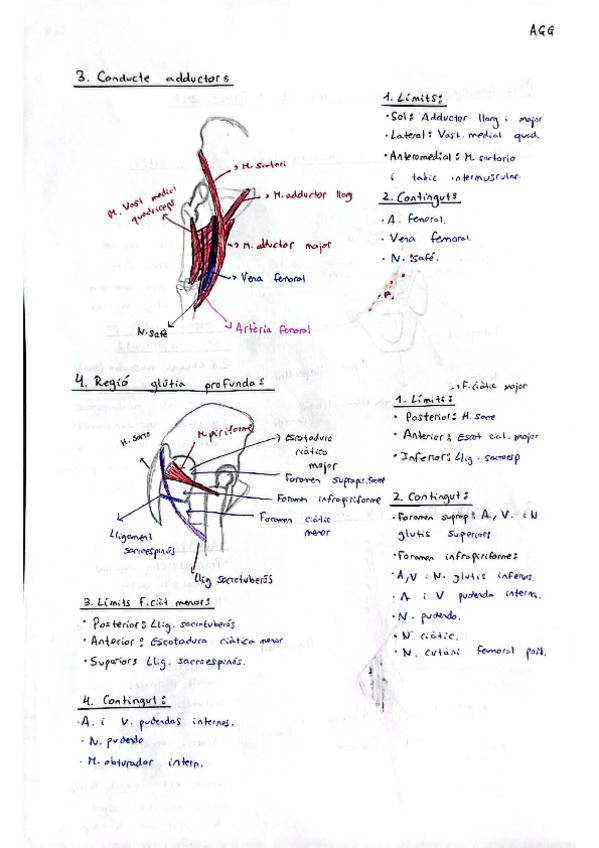 AGG
3. Conducte adductors
M. Sartori
M. adductor llarg
M. Vast medial
quadriceps
M. adductor major
Vena femoral
N. Safè
Artèria femoral
1. Límits:
· Sol: Adductor llarg i major
· Lateral: Vast. medial quad.
· Anteromedial: M. sartorio
i tabic intermuscular.
2. Continguts
· A. femoral.
· Vena femoral.
· N. Safé.
4. Regió glútia profunda:
H. Sacre
M. piriforme
Escotadura
ciàtica
major
Foramen suprapiriforme
Foramen infrapiriforme
Foramen ciàtic
menor
Lligament
sacroespinós
Llig sacrotuberós
→ F. ciàtic major
1. Límits:
· Posterior: H. Sacre
· Anterior: Escot ciat. major
· Inferior: Llig. sacroesp
2. Contingut:
· Foramen suprap: A, V. i N
glutis superiors
· Foramen infrapiriforme:
· A, V i N. glutis inferiors.
· A i V pudenda interna.
· N. pudendo.
· N ciàtic.
· N. cutàni femoral post.
3. Límits F. ciàt menor:
· Posterior: Llig. sacrotuberós
· Anterior: Escotadura ciàtica menor.
· Superior: Llig. sacroespinós.
4. Contingut:
· A. i V. pudendas internas.
· N. pudendo
· M. obturador intern.